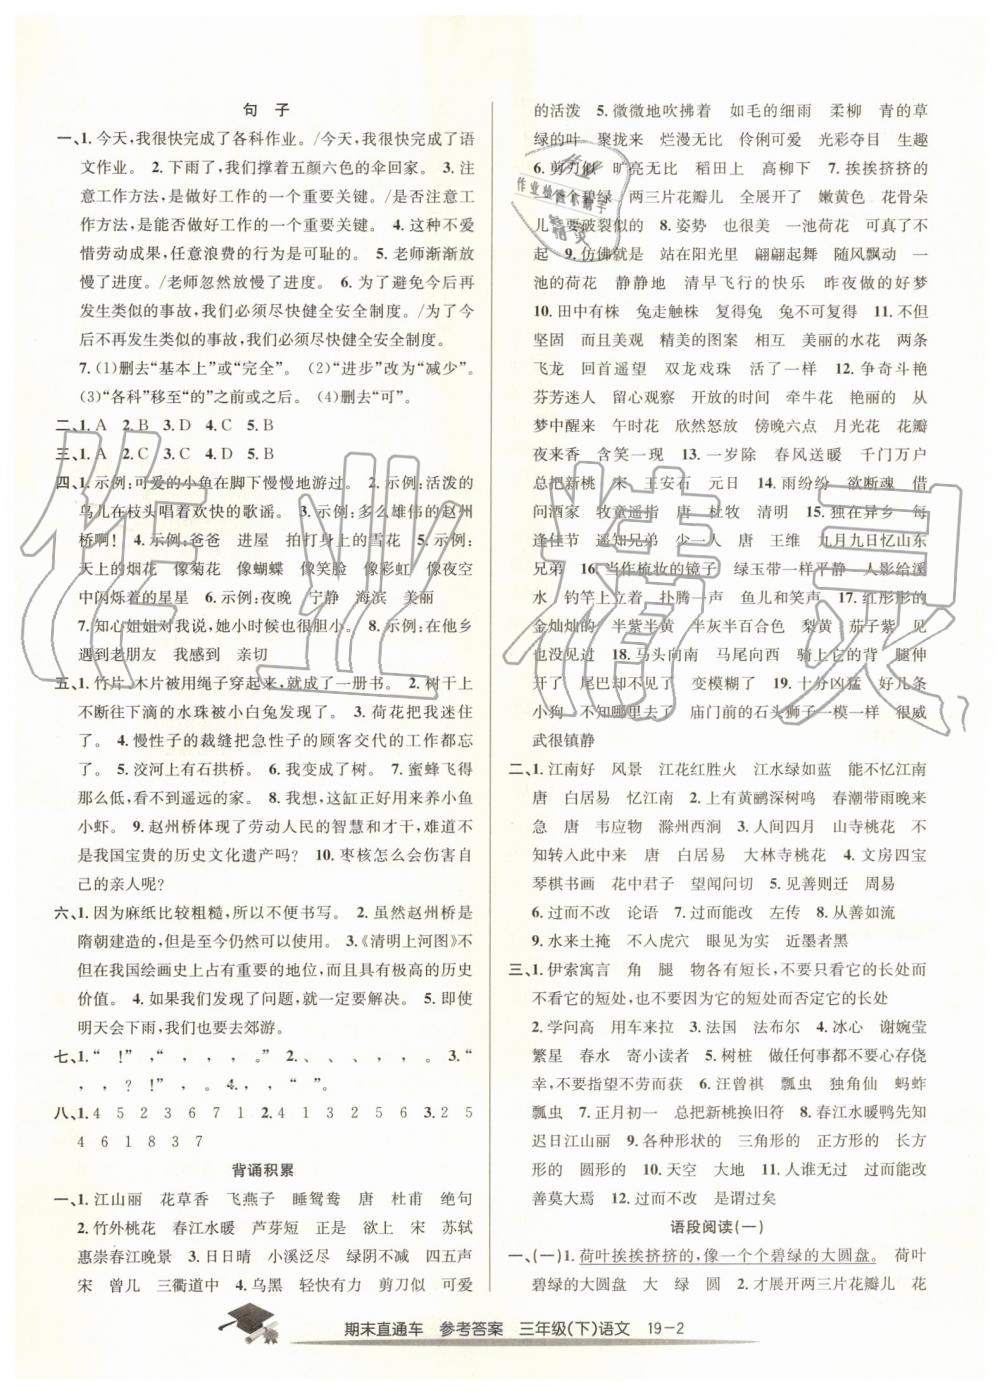 句 子
一、1.今天,我很快完成了各科作业。/今天,我很快完成了语
文作业。 2.下雨了,我们撑着五颜六色的伞回家。 3.注
意工作方法,是做好工作的一个重要关键。/是否注意工
作方法,是能否做好工作的一个重要关键。 4.这种不爱
惜劳动成果,任意浪费的行为是可耻的。 5.老师渐渐放
慢了进度。/老师忽然放慢了进度。 6.为了避免今后再
发生类似的事故,我们必须尽快健全安全制度。/为了今
后不再发生类似的事故,我们必须尽快健全安全制度。
7.(1)删去“基本上”或“完全”。 (2)“进步”改为“减少”。
(3)“各科”移至“的”之前或之后。 (4)删去“可”。
二、1. A 2. B 3. D 4. C 5. B
三、1. A 2. C 3. D 4. C 5. B
四、1.示例:可爱的小鱼在脚下慢慢地游过。 2.示例:活泼的
鸟儿在枝头唱着欢快的歌谣。 3.示例:多么雄伟的赵州
桥啊! 4.示例:爸爸 进屋 拍打身上的雪花 5.示例:
天上的烟花 像菊花 像蝴蝶 像笑脸 像彩虹 像夜空
中闪烁着的星星 6.示例:夜晚 宁静 海滨 美丽
7.知心姐姐对我说,她小时候也很胆小。 8.示例:在他乡
遇到老朋友 我感到 亲切
五、1.竹片、木片被用绳子穿起来,就成了一册书。 2.树干上
不断往下滴的水珠被小白兔发现了。 3.荷花把我迷住
了。 4.慢性子的裁缝把急性子的顾客交代的工作都忘
了。 5.洨河上有石拱桥。 6.我变成了树。 7.蜜蜂飞得
那么低,看不到遥远的家。 8.我想,这缸正好用来养小鱼
小虾。 9.赵州桥体现了劳动人民的智慧和才干,难道不
是我国宝贵的历史文化遗产吗? 10.枣核怎么会伤害自
己的亲人呢?
六、1.因为麻纸比较粗糙,所以不便书写。 2.虽然赵州桥是
隋朝建造的,但是至今仍然可以使用。 3.《清明上河图》不
但在我国绘画史上占有重要的地位,而且具有极高的历史
价值。 4.如果我们发现了问题,就一定要解决。 5.即使
明天会下雨,我们也要去郊游。
七、1.“ !”,“ , , , 。” 2. 、 、 , , 。 3.“
, , ? !”, , 。 4.
八、1. 4 5 2 3 6 7 1 2. 4 1 3 2 5 6 3. 2 5
4 6 1 8 3 7
背诵积累
一、1.江山丽 花草香 飞燕子 睡鸳鸯 唐 杜甫 绝句
2.竹外桃花 春江水暖 芦芽短 正是 欲上 宋 苏轼
惠崇春江晚景 3.日日晴 小溪泛尽 绿阴不减 四五声
宋 曾几 三衢道中 4.乌黑 轻快有力 剪刀似 可爱
的活泼 5.微微地吹拂着 如毛的细雨 柔柳 青的草
绿的叶 聚拢来 烂漫无比 伶俐可爱 光彩夺目 生趣
6.剪刀似 旷亮无比 稻田上 高柳下 7.挨挨挤挤的
碧绿 两三片花瓣儿 全展开了 嫩黄色 花骨朵
儿 要破裂似的 8.姿势 也很美 一池的荷花 可真了不
起 9.仿佛就是 站在阳光里 翩翩起舞 随风飘动 一
池的荷花 静静地 清早飞行的快乐 昨夜做的好梦
10.田中有株 兔走触株 复得兔 兔不可复得 11.不但
坚固 而且美观 精美的图案 相互 美丽的水花 两条
飞龙 回首遥望 双龙戏珠 活了一样 12.争奇斗艳
芬芳迷人 留心观察 开放的时间 牵牛花 艳丽的 从
梦中醒来 午时花 欣然怒放 傍晚六点 月光花 花瓣
夜来香 含笑一现 13.一岁除 春风送暖 千门万户
总把新桃 宋 王安石 元日 14.雨纷纷 欲断魂 借
问酒家 牧童遥指 唐 杜牧 清明 15.独在异乡 每
逢佳节 遥知兄弟 少一人 唐 王维 九月九日忆山东
兄弟 16.当作梳妆的镜子 绿玉带一样平静 人影给溪
水 钓竿上立着 扑腾一声 鱼儿和笑声 17.红彤彤的
金灿灿的 半紫半黄 半灰半百合色 梨黄 茄子紫 见
也没见过的 18.马头向南 马尾向西 骑上它的背 腿伸
开了 尾巴却不见了 变模糊了 19.十分凶猛 好几条
小狗 不知道哪里 庙门前的石头狮子一模一样 很威
武很镇静
二、1.江南好 风景 江花红胜火 江水绿如蓝 能不忆江南
唐 白居易 忆江南 2.上有黄鹂深树鸣 春潮带雨晚来
急 唐 韦应物 滁州西涧 3.人间四月 山寺桃花 不
知转入此中来 唐 白居易 大林寺桃花 4.文房四宝
琴棋书画 花中君子 望闻问切 5.见善则迁 周易
6.过而不改 论语 7.过而能改 左传 8.从善如流
9.水来土掩 不入虎穴 眼见为实 近墨者黑
三、1.伊索寓言 角 腿 物各有短长,不要只看它的长处而
不看它的短处,也不要因为它的短处而否定它的长处
2.学问高 用车来拉 3.法国 法布尔 4.冰心 谢婉莹
繁星 春水 寄小读者 5.树桩 做任何事都不要存侥
幸,不要指望不劳而获 6.汪曾祺 瓢虫 独角仙 蚂蚱
瓢虫 7.正月初一 总把新桃换旧符 8.春江水暖鸭先知
迟日江山丽 9.各种形状的 三角形的 正方形的 长方
形的 圆形的 10.天空 大地 11.人谁无过 过而能改
善莫大焉 12.过而不改 是谓过矣
语段阅读(一)
一、(一)1.荷叶挨挨挤挤的,像一个个碧绿的大圆盘。 荷叶
碧绿的大圆盘 大 绿 圆 2.才展开两三片花瓣儿 花
期末直通车 参考答案 三年级(下)语文 19-2
作业精灵